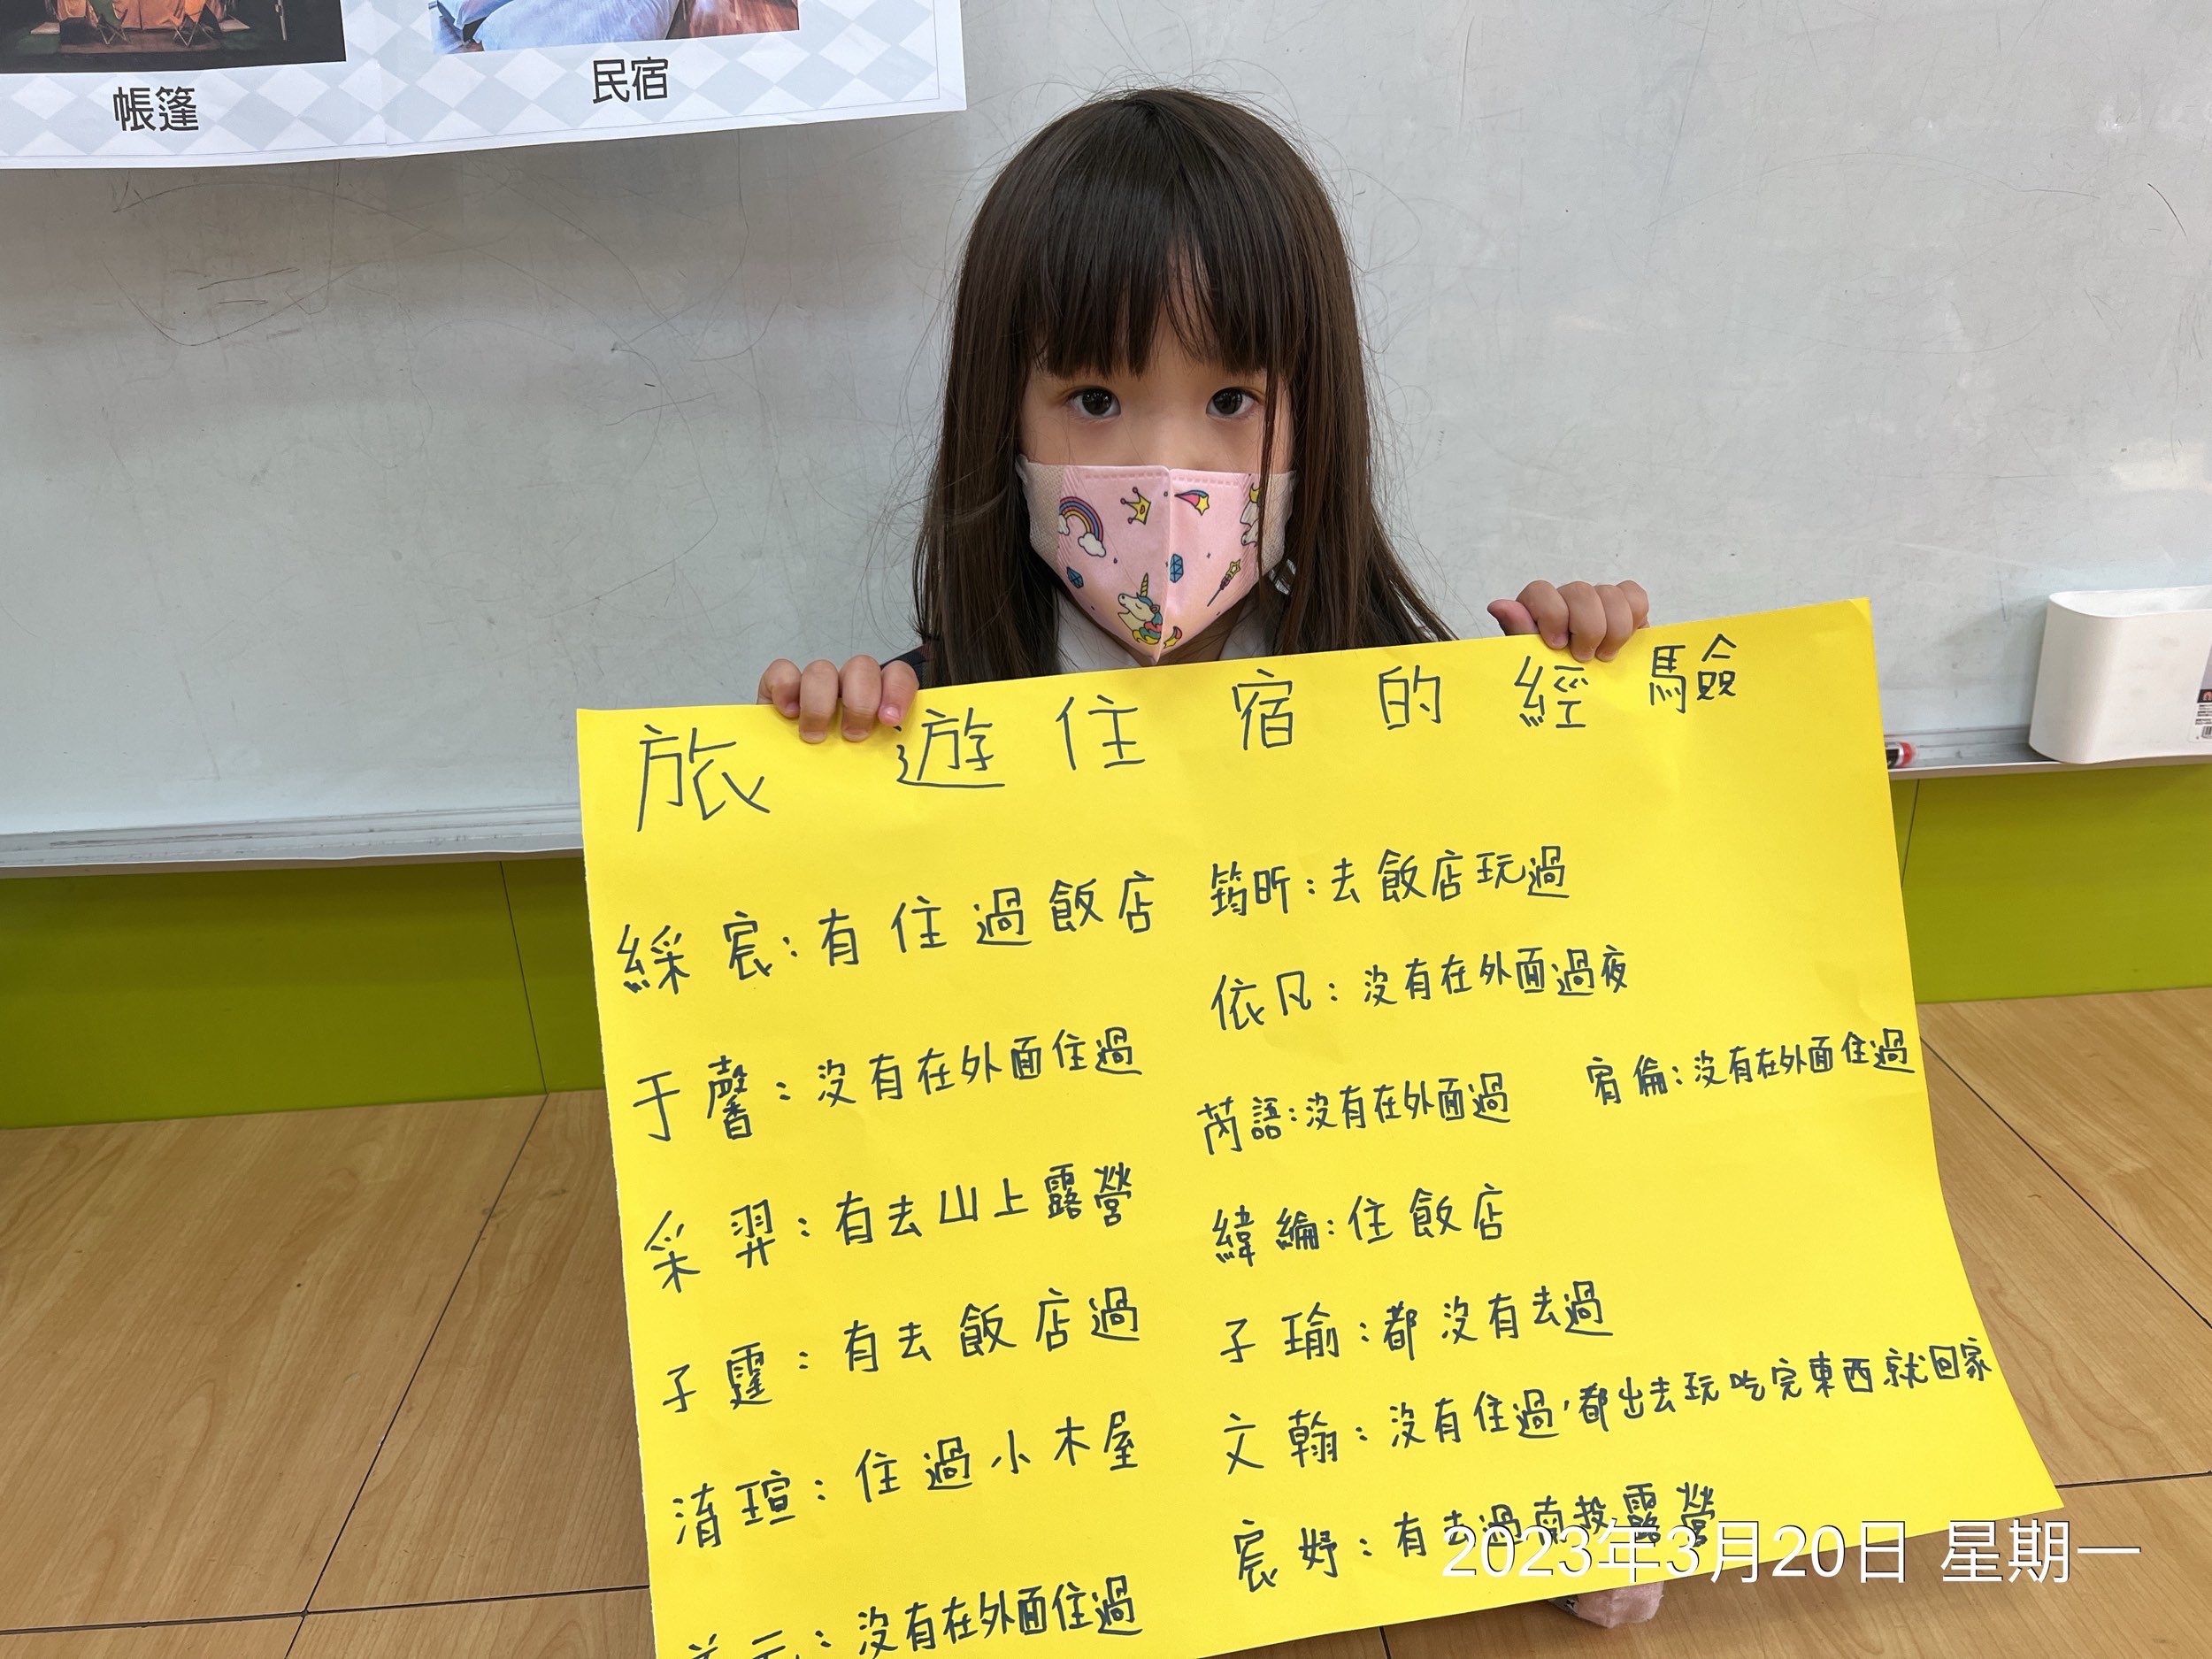 帳篷
民宿
旅遊住宿的經驗
綵宸：有住過飯店
于馨：沒有在外面住過
采羿：有去山上露營
子霆：有去飯店過
淯瑄：住過小木屋
元：沒有在外面住過
筠昕：去飯店玩過
依凡：沒有在外面過夜
芮語：沒有在外面過
宥倫：沒有在外面住過
緯綸：住飯店
子瑜：都沒有去過
文翰：沒有住過，都出去玩吃完東西就回家
宸妤：有去過南投露營
2023年3月20日 星期一